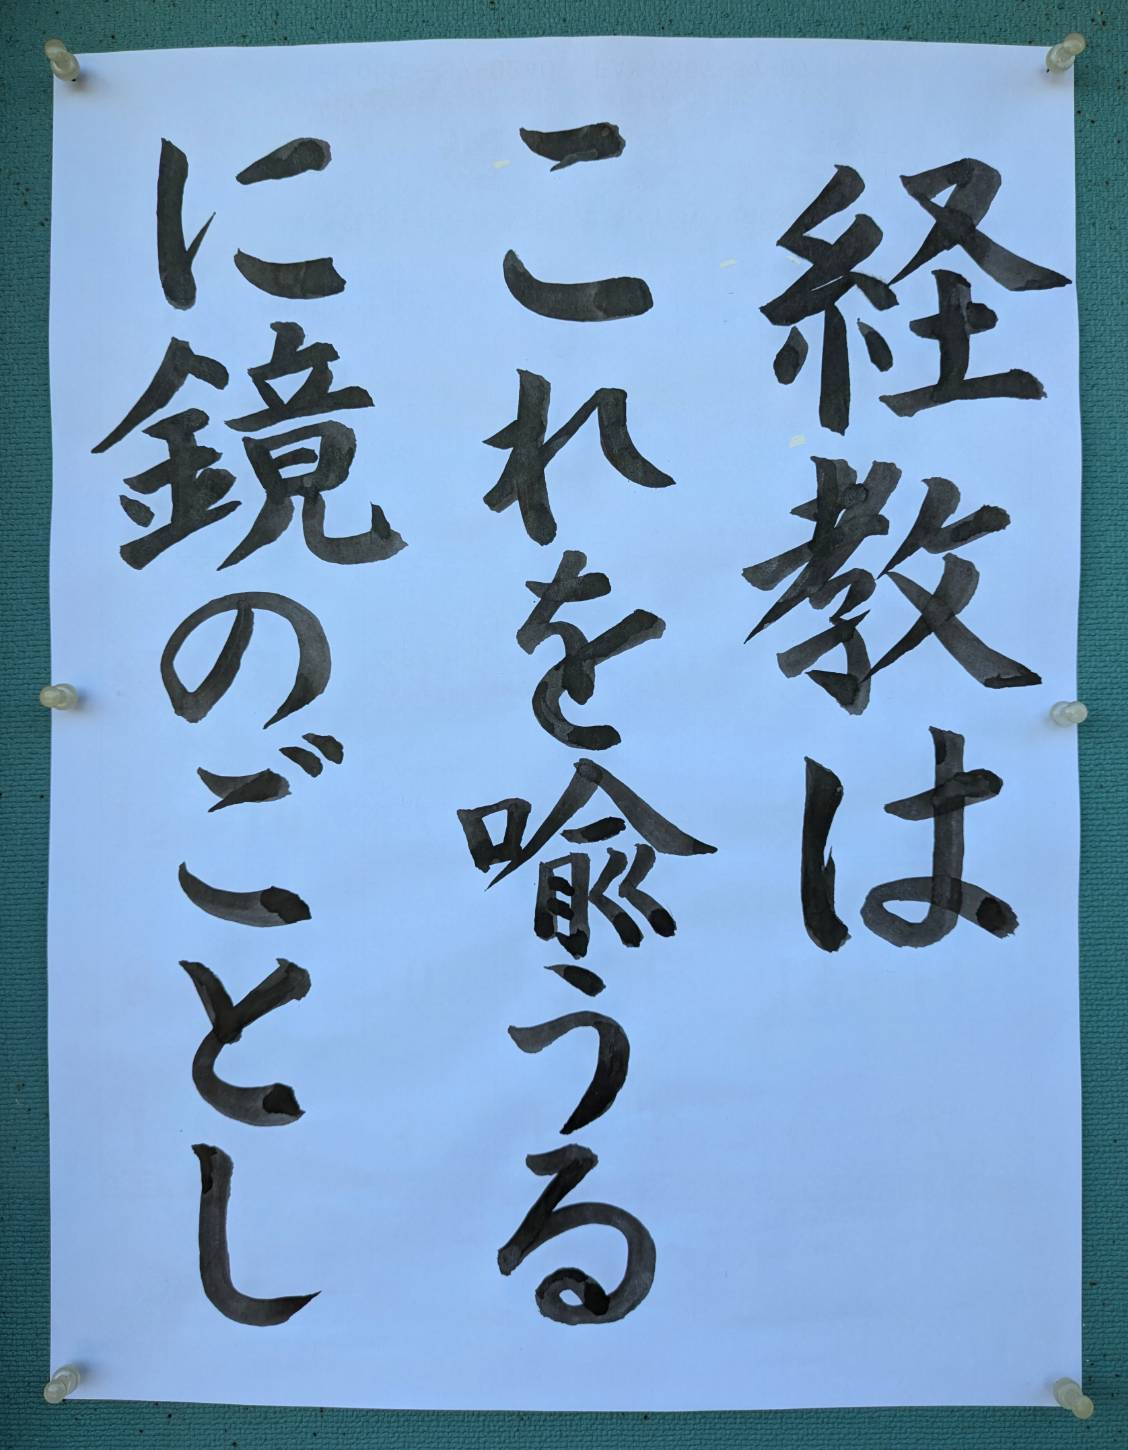 経教は
これを喩うる
に鏡のごとし